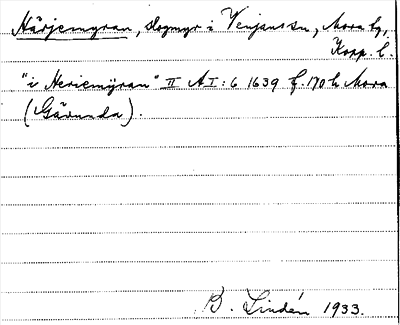 Närjemyran, slogmyr i Venjans sn, Mora tg,
Kopp. l.
"i Neriemÿran" II A I: 6 1639 f. 170 b Mora
(Gävunda).
B. Lindén 1933.